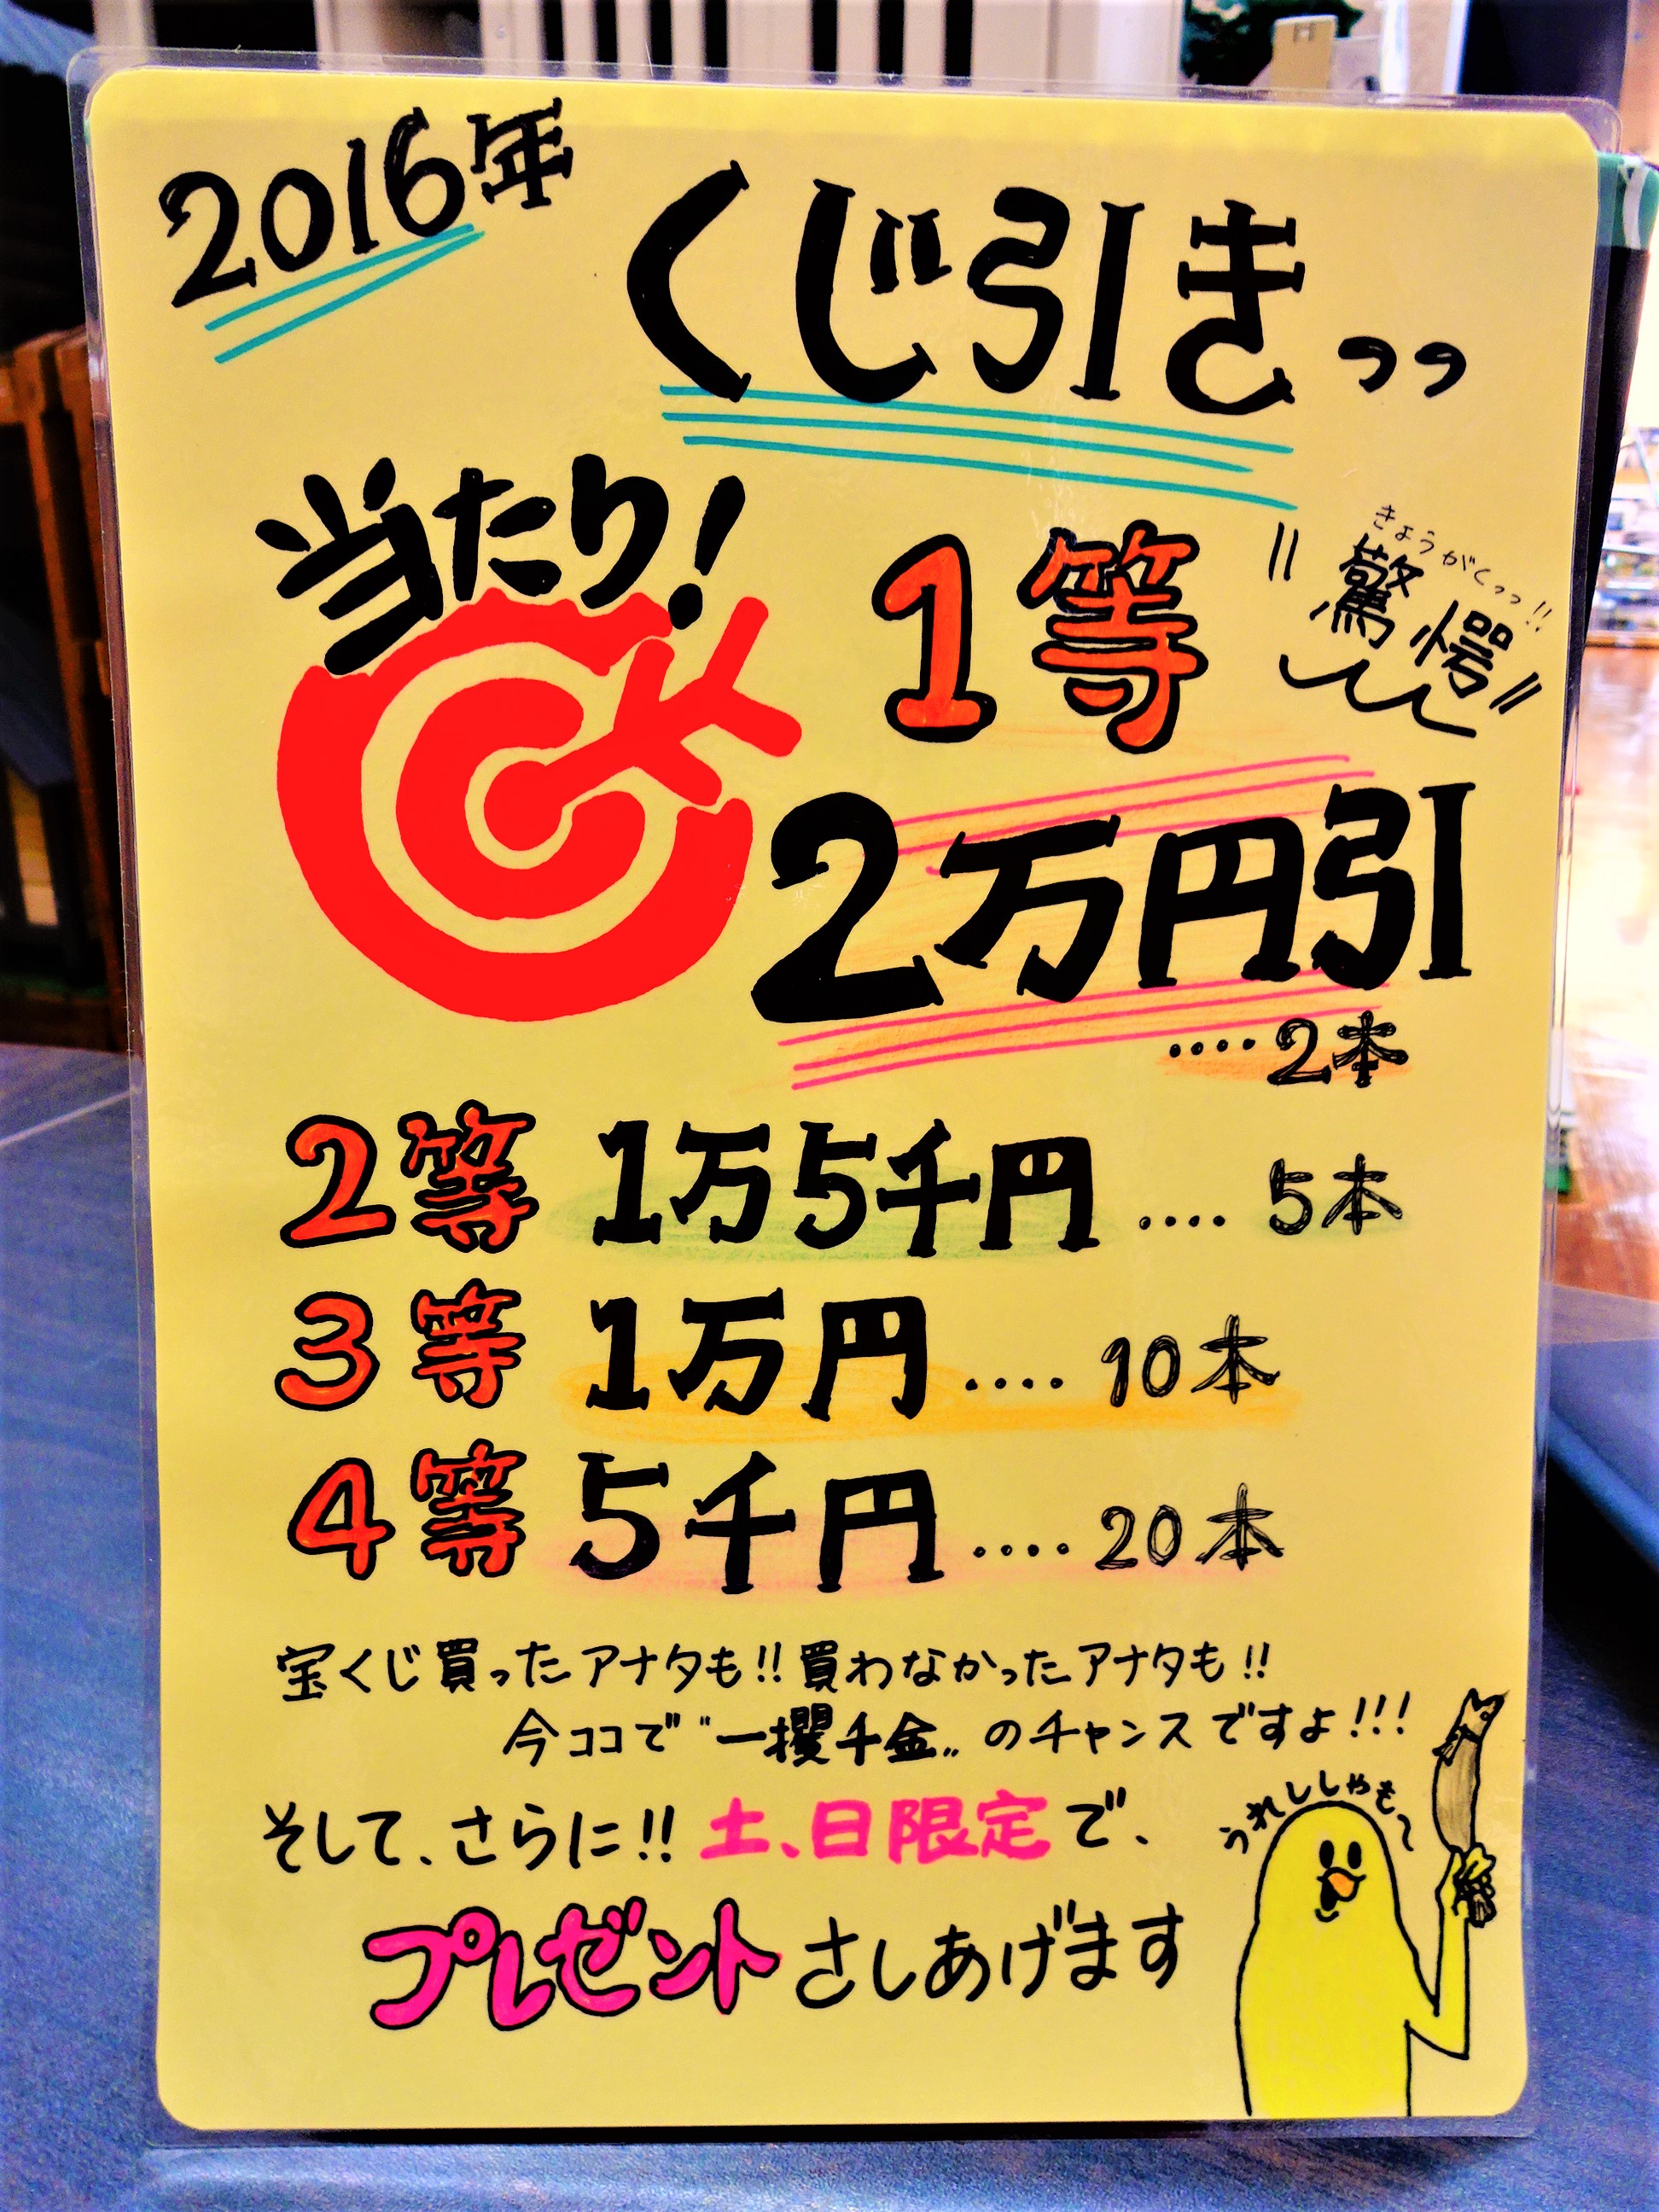 2016年
くじ引きっっ
当たり!
1等
きょうがくっっ!!
驚愕
2万円引
····2本
2等 1万5千円 ···· 5本
3等 1万円 ···· 10本
4等 5千円 ···· 20本
宝くじ買ったアナタも!!買わなかったアナタも!!
今ココで〝一攫千金〟のチャンスですよ!!!
そして、さらに!!土、日限定で、
プレゼントさしあげます
うれししゃも〜